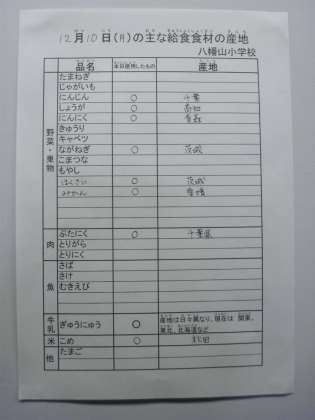 12月10日(月)の主な給食食材の産地
八幡山小学校
品名 本日使用したもの 産地
野菜・果物
たまねぎ
じゃがいも
にんじん ○ 千葉
しょうが ○ 高知
にんにく ○ 青森
きゅうり
キャベツ
ながねぎ ○ 茨城
こまつな
もやし
はくさい ○ 茨城
みかん ○ 愛媛
肉
ぶたにく ○ 千葉県
とりがら
とりにく
魚
さば
さけ
むきえび
牛乳 ぎゅうにゅう ○ 産地は日々異なり、現在は 関東、
東北、北海道など
米 こめ ○ 秋田
他 たまご